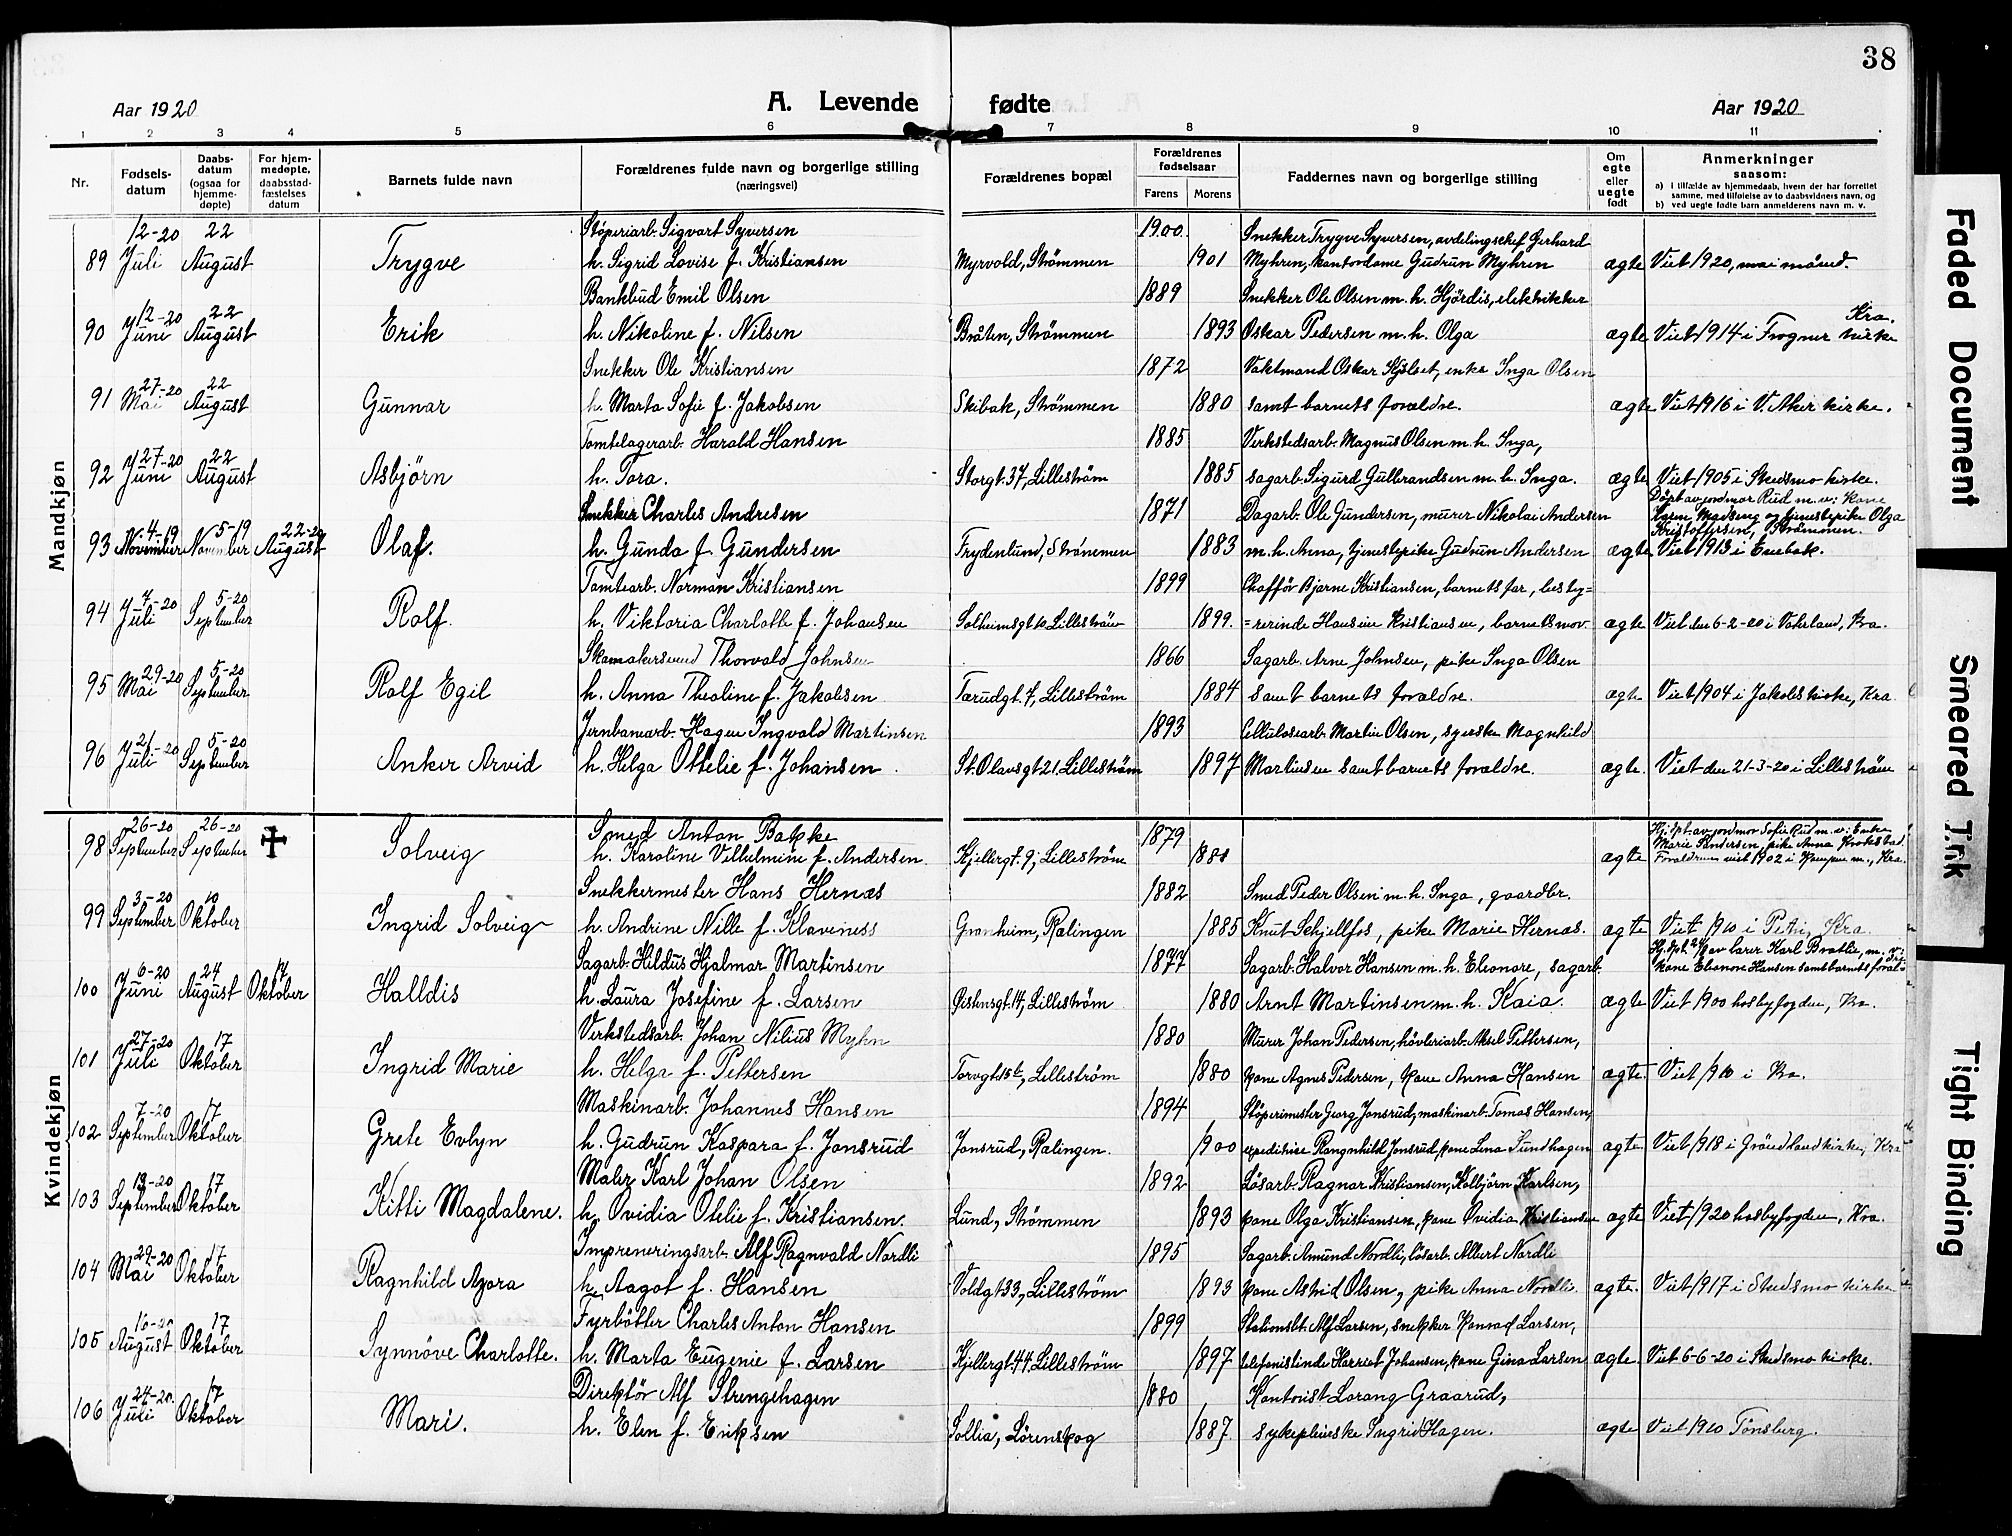 38
Aar 1920 A. Levende fødte Aar 1920
1 2 3 4 5 6 7 8 9 10 11
Nr. Fødsels-datum Daabs-datum (ogsaa for hjemme-døpte) For hjem-medøpte, daabsstad-fæstelses datum Barnets fulde navn Forældrenes fulde navn og borgerlige stilling (næringsvei) Forældrenes bopæl Forældrenes fødselsaar Farens Morens Faddernes navn og borgerlige stilling Om egte eller uegte født Anmerkninger saasom:
a) i tilfælde av hjemmedaab, hvem der har forrettet samme, med tilføielse av to daabsvidners navn, og
b) ved uegte fødte barn anmelderens navn m. v.
Mandkjøn
12-20 22 Støperiarb. Sigvart Syversen 1900. Snekker Trygve Syversen, avdelingschef Gerhard
89 Juli August Trygve h. Sigrid Lovise f. Kristiansen Myrvold, Strømmen 1901 Myhren, kontordame Gudrun Myhren ægte Viet 1920, mai måned.
12-20 22 Bankbud Emil Olsen 1889 Snekker Ole Olsen m. h. Hjördis, elektriker Kra.
90 Juni August Erik h. Nikoline f. Nilsen Bråten, Strømmen 1893 Oskar Pedersen m. h. Olga ægte Viet 1914 i Frogner kirke
27-20 22 Snekker Ole Kristiansen 1872 Vaktmand Oskar Kjölset, enke Inga Olsen
91 Mai August Gunnar h. Marta Sofie f. Jakobsen Skibak, Strømmen 1880 samt barnets forældre. ægte Viet 1916 i V. Aker kirke.
27-20 22 Tomtelagerarb. Harald Hansen 1885 Verkstedsarb. Magnus Olsen m. h. Inga,
92 Juni August Asbjörn h. Tora. Storgt. 37, Lilleström 1885 sagarb. Sigurd Gulbrandsen m. h. Inga. ægte Viet 1905 i Skedsmo kirke.
4-19 5-19 22-20 Snekker Charles Andresen 1871 Dagarb. Ole Gundersen, murer Nikolai Andersen Döpt av jordmor Rud m. v: Kone Karen Madseng og tjenestepike Olga Kristoffersen, Strömmen.
93 November November August Olaf. h. Gunda f. Gundersen Frydenlund, Strömmen 1883 m. h. Anna, tjenestepike Gudrun Andersen ægte Viet 1913 i Enebak.
7-20 5-20 Tomtearb. Norman Kristiansen 1899 Chafför Bjarne Kristiansen, barnets far, besty=
94 Juli September Rolf. h. Viktoria Charlotte f. Johansen Solheimsgt 10 Lilleström 1899. =rerinde Hansine Kristiansen, barnets mor. ægte Viet den 6-2-20 i Vaterland, Kra.
29-20 5-20 Skomakersvend Thorvald Johnsen 1866 Sagarb. Arne Johnsen, pike Inga Olsen
95 Mai September Rolf Egil h. Anna Theoline f. Jakobsen Tærudgt. 7, Lilleström 1884 samt barnets forældre. ægte Viet 1904 i Jakobs kirke, Kra.
21-20 5-20 Jernbanearb. Hagen Ingvald Martinsen 1893 Cellulosearb. Martin Olsen, syerske Magnhild
96 Juli September Anker Arvid h. Helga Ottelie f. Johansen St. Olavsgt 21 Lilleström 1897 Martinsen samt barnets forældre. ægte. Viet den 21-3-20 i Lilleström
Kvindekjøn
26-20 26-20 Smed Anton Bakke 1879 Hj. döpt. av jordmor Sofie Rud m. v: Enke
98 September September Solveig h. Karoline Vilhelmine f. Andersen. Kjellergt. 9, Lilleström 1881 ægte Marie Andersen, pike Anna Krokstad. Forældrene viet 1902 i Kampen m., Kra.
3-20 10 Snekkermester Hans Hernæs 1882 Smed Peder Olsen m. h. Inga, gaardbr.
99 September Oktober Ingrid Solveig h. Andrine Nille f. Klaveness Granheim, Rælingen 1885 Knut Schjellfos, pike Marie Hernæs. ægte Viet 1910 i Petri, Kra.
6-20 24 17 Sagarb. Hildus Hjalmar Martinsen 1877 Sagarb. Halvor Hansen m. h. Eleonore, sagarb. Hj. döpt av lærer Karl Bratlie m. v: kone Eleonore Hansen samt barnets
100 Juni August Oktober Halldis h. Laura Josefine f. Larsen 14, Lilleström 1880 Arnt Martinsen m. h. Kaia. ægte Viet 1900 hos byfogden, Kra.
27-20 17 Verkstedsarb. Johan Nilius Myhn 1880 Murer Johan Pedersen, hövleriarb. Aksel Pettersen,
101 Juli Oktober Ingrid Marie h. Helga f. Pettersen Torvgt 15b, Lilleström 1880 kone Agnes Pedersen, kone Anna Hansen ægte. Viet 1910 i Kra.
7-20 17 Maskinarb. Johannes Hansen 1894 Stöperimester Georg Jonsrud, maskinarb. Tomas Hansen,
102 September Oktober Grete Evlyn h. Gudrun Kaspara f. Jonsrud Jonsrud, Rælingen. 1900 Rangnhild Jonsrud, kone Lena Sundhagen ægte. Viet 1918 i Grönland kirke, Kra
13-20 17 Maler Karl Johan Olsen 1892 Lösarb. Ragnar Kristiansen, Kolbjörn Karlsen,
103 September Oktober Kitti Magdalene. h. Ovidia Otelie f. Kristiansen. Lund, Strömmen 1893 kone Olga Kristiansen, kone Ovidia Kristiansen ægte Viet 1920 hos byfogden, Kra.
29-20 17 Impreneringsarb. Alf Ragnvald Nordli 1895 Sagarb. Amund Nordli, lösarb. Albert Nordli
104 Mai Oktober Ragnhild Azora h. Aagot f. Hansen Voldgt 33, Lilleström 1893 kone Astrid Olsen, pike Anna Nordli. ægte. Viet 1917 i Skedsmo kirke
10-20 17 Fyrbötter Charles Anton Hansen 1899 Stationsbt. Alf Larsen, snekker Konrad Larsen,
105 August Oktober Synnöve Charlotte. h. Marta Eugenie f. Larsen Kjellergt. 44 Lilleström 1897 telefonistinde Harriet Johansen, kone Gina Larsen ægte. Viet 6-6-20 i Skedsmo kirke.
24-20. 17 Direktör Alf Strengehagen 1880 Kontorist Lorang Graarud,
106 Juli Oktober Mari. h. Elen f. Eriksen Sollia, Lörenskog 1887 sykepleierske Ingrid Hagen. ægte Viet 1910 Tönsberg.
Faded Document
Smeared Ink
Tight Binding